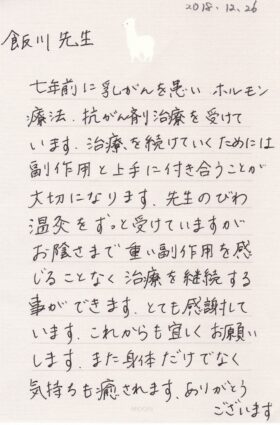 2018.12.26
飯川 先生
七年前に乳がんを患い ホルモン
療法．抗がん剤治療を受けて
います．治療を続けていくためには
副作用と上手に付き合うことが
大切になります．先生のびわ
温灸をずっと受けていますが
お陰さまで重い副作用を感
じることなく治療を継続する
事ができます．とても感謝して
います．これからも宜しくお願い
します．また身体だけでなく
気持ちも癒されます．ありがとう
ございます